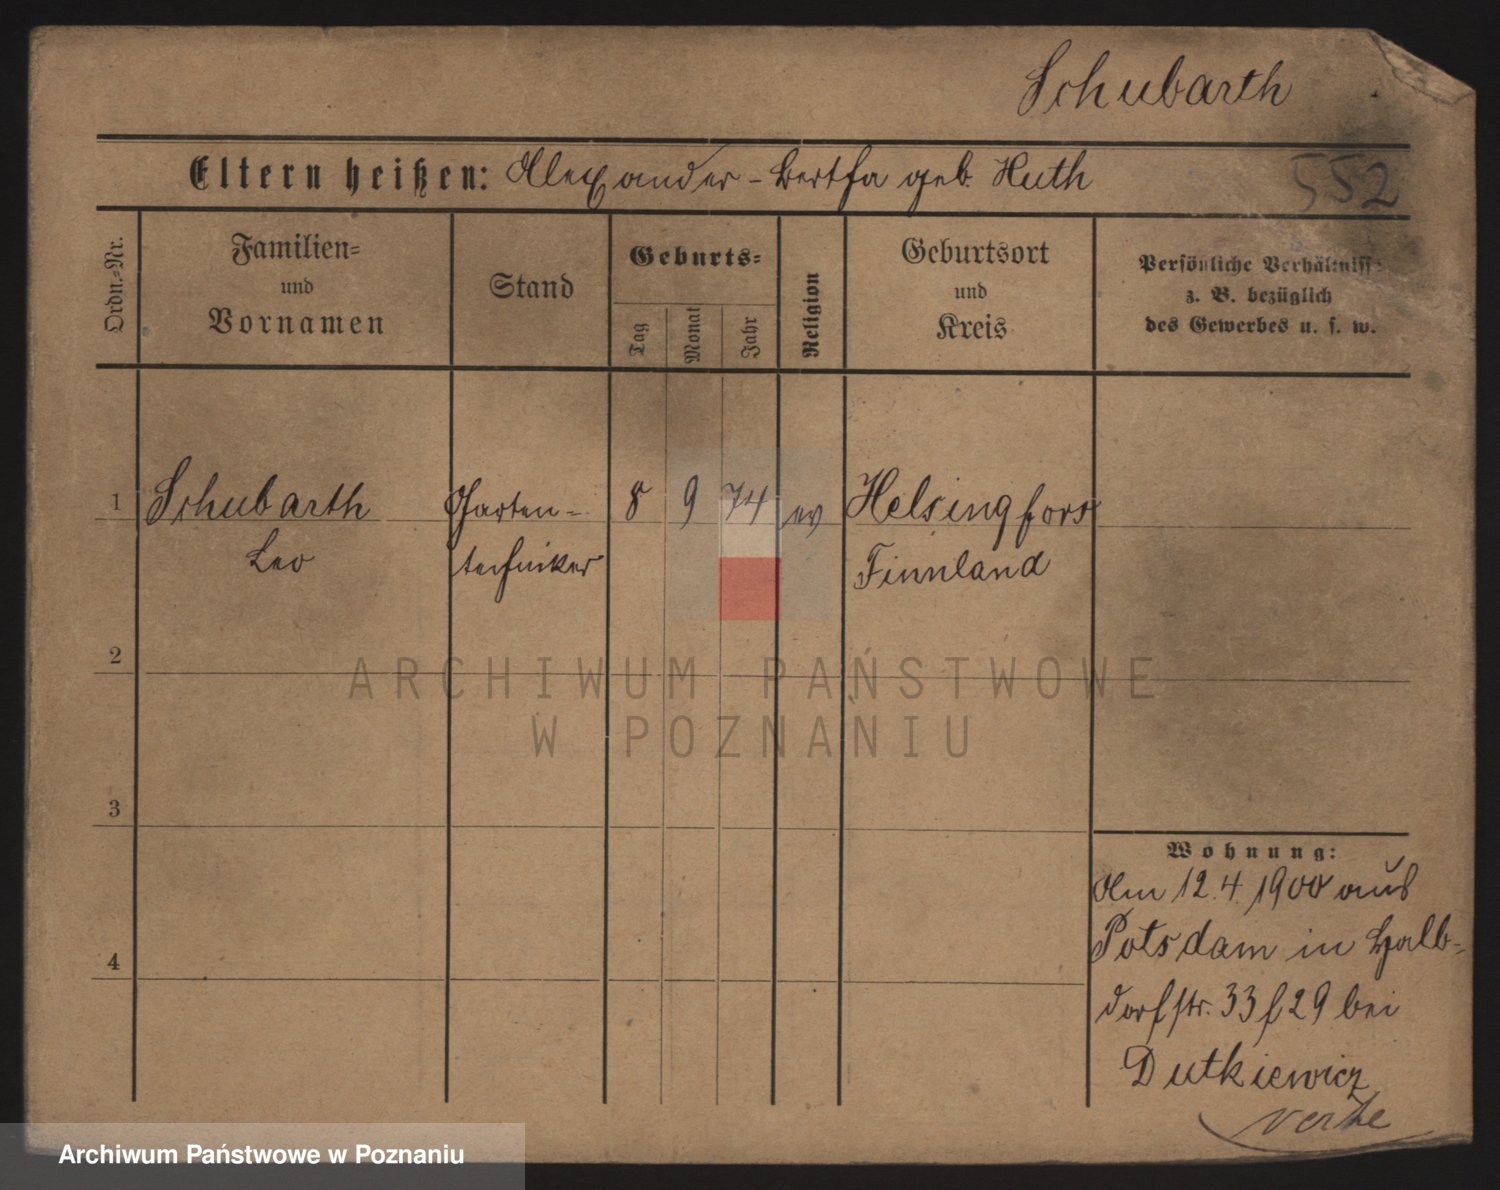 Schubarth
Eltern heißen: Alexander - Bertha geb. Huth
552
Ordn.-Nr.
Familien-
und
Vornamen
Stand
Geburts-
Tag
Monat
Jahr
Religion
Geburtsort
und
Kreis
Persönliche Verhältniss
z. B. bezüglich
des Gewerbes u. s. w.
1 Schubarth Garten- 8 9 74 ev Helsingfors
Leo techniker Finnland
2
ARCHIWUM PAŃSTWOWE
W POZNANIU
3
Wohnung:
Am 12.4.1900 aus
Potsdam in Halb-
4
dorfstr. 33 f 29 bei
Dutkiewicz
verte
Archiwum Państwowe w Poznaniu